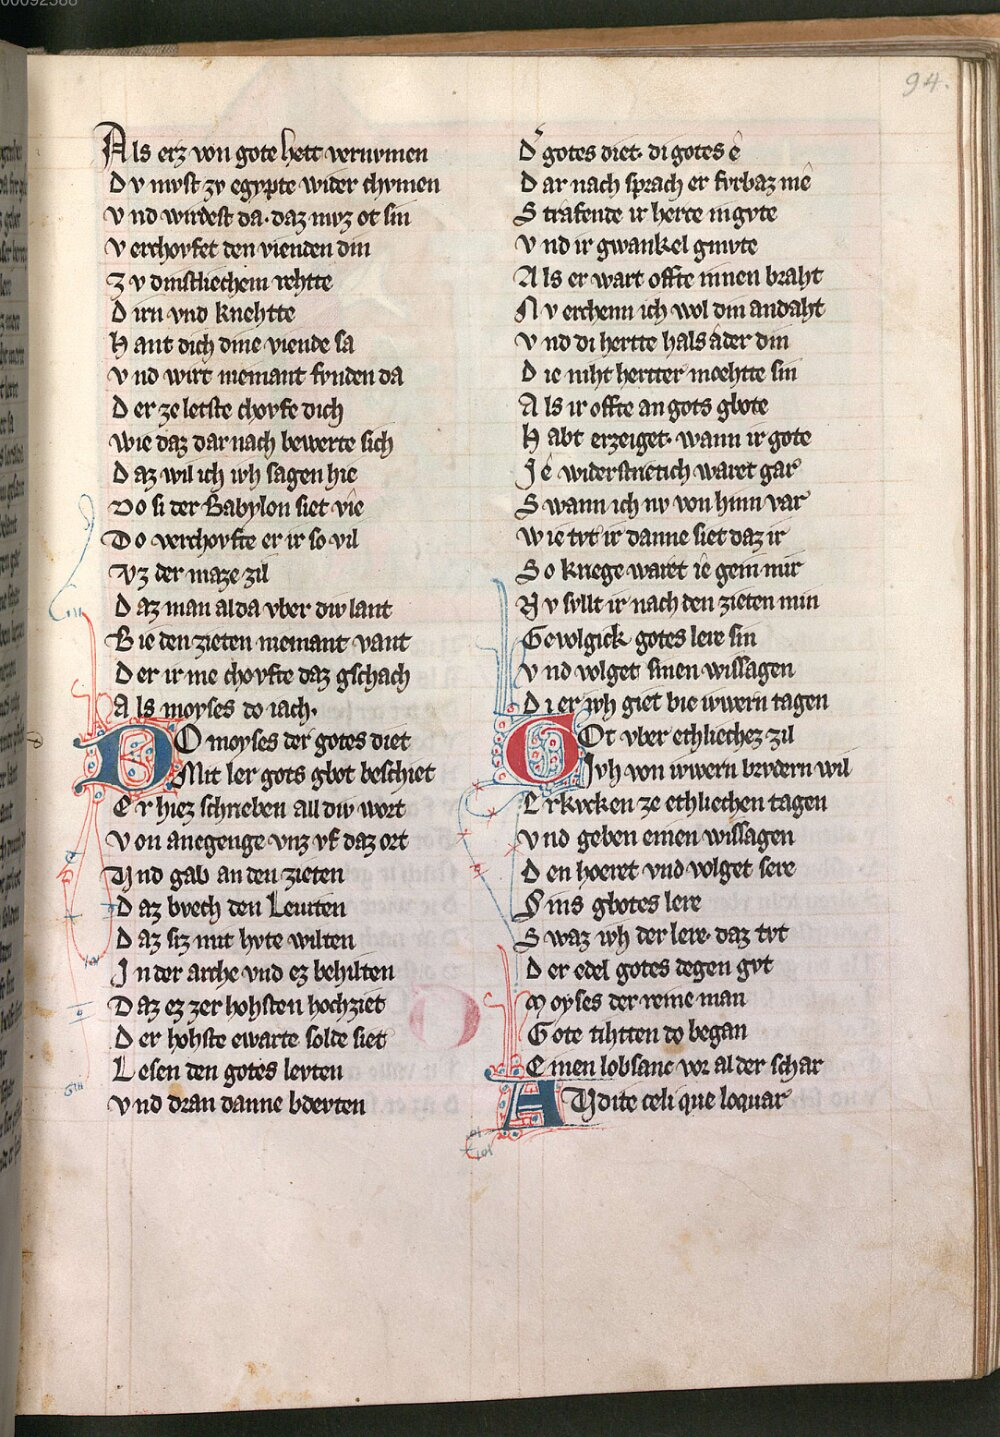 00092588
94.
Als erz von gote hett vernvmen
Dv mvst zv egypte wider chvmen
Vnd wirdest da· daz mvz ot sin
Verchovfet den vienden din
Zv dinstliechem rehtte
Dirn vnd knehtte
Hant dich dine viende sa
Vnd wirt niemant fvnden da
Der ze letste chovfe dich
Wie daz dar nach bewerte sich
Daz wil ich ivh sagen hie
Do si der Babylon siet vie
Do verchovfte er ir so vil
Vz der maze zil
Daz man al da vber div lant
Bie den zieten niemant vant
Der ir me chovfte daz gschach
Als moyses do iach·
DO moyses der gotes diet
Mit ler gots gbot beschiet
Er hiez schrieben all div wort
Von anegenge vnz vf daz ort
Vnd gab an den zieten
Daz bvech den Leuiten
Daz siz mit hvte wilten
In der arche vnd ez behilten
Daz ez zer hohsten hochziet
Der hohste ewarte solde siet
Lesen den gotes levten
Vnd dran danne bdevten
Der gotes diet· di gotes ê
Dar nach sprach er fvrbaz mê
Strafende ir herce ingvte
Vnd ir gwankel gmvte
Als er wart offte innen braht
Nv erchenn ich wol din andaht
Vnd di hertte hals ader din
Die niht hertter moehtte sin
Als ir offte an gots gbote
Habt erzeiget· wann ir gote
Jê widerstrietich waret gar
Swann ich nv von hinn var
Wie tvt ir danne siet daz ir
So kriege waret ie gein mir
Nv svllt ir nach den zieten min
Gevolgick gotes lere sin
Vnd volget sinen wissagen
Di er ivh giet bie iwern tagen
GOt vber ethliechez zil
Jvh von iwern brvdern wil
Erkvcken ze ethliechen tagen
Vnd geben einen wissagen
Den hoeret vnd volget sere
Sins gbotes lere
Swaz ivh der lere· daz tvt
Der edel gotes degen gvt
Moyses der reine man
Gote tihtten do began
Einen lobsanc vor al der schar
AVdite celi que loquar